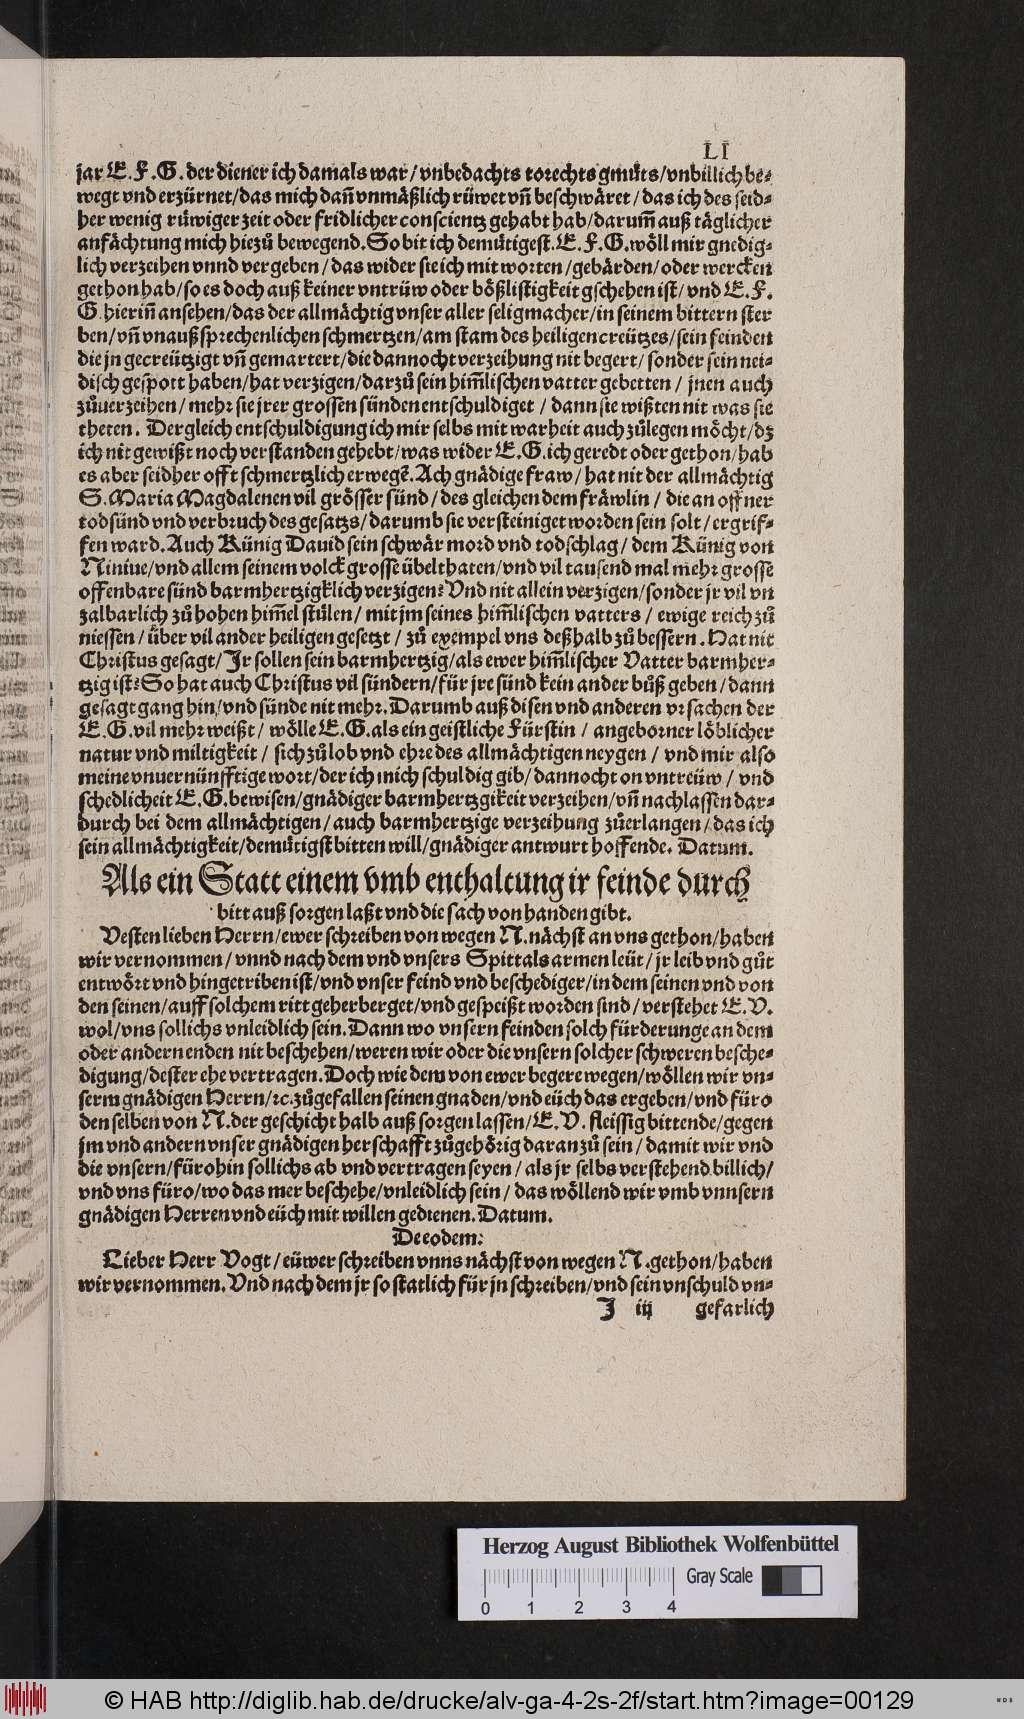 LI
jar E. F. G. der diener ich damals war / vnbedachts torechts gmuͤts / vnbillich be⸗
wegt vnd erzürnet / das mich dañ vnmäßlich rüwet vñ beschwäret / das ich des seid⸗
her wenig rüwiger zeit oder fridlicher conscientz gehabt hab / darum̃ auß täglicher
anfächtung mich hiezů bewegend. So bit ich demuͤtigest. E. F. G. woͤll mir gnedig⸗
lich verzeihen vnnd vergeben / das wider sie ich mit worten / gebärden / oder wercken
gethon hab / so es doch auß keiner vntrüw oder boͤßlistigkeit gschehen ist / vnd E. F.
G. hierin̄ ansehen / das der allmächtig vnser aller seligmacher / in seinem bittern ster
ben / vñ vnaußsprechenlichen schmertzen / am stam des heiligen creützes / sein feinden
die jn gecreützigt vñ gemartert / die dannocht verzeihung nit begert / sonder sein nei⸗
disch gespott haben / hat verzigen / darzů sein him̃lischen vatter gebetten / jnen auch
zůuerzeihen / mehr sie jrer grossen sünden entschuldiget / dann sie wißten nit was sie
theten. Dergleich entschuldigung ich mir selbs mit warheit auch zůlegen moͤcht / dz
ich nit gewißt noch verstanden gehebt / was wider E. G. ich geredt oder gethon / hab
es aber seidher offt schmertzlich erwegẽ. Ach gnädige fraw / hat nit der allmächtig
S. Maria Magdalenen vil groͤsser sünd / des gleichen dem fräwlin / die an offner
todsünd vnd verbruch des gesatzs / darumb sie versteiniget worden sein solt / ergrif⸗
fen ward. Auch Künig Dauid sein schwär mord vnd todschlag / dem Künig von
Niniue / vnd allem seinem volck grosse übelthaten / vnd vil tausend mal mehr grosse
offenbare sünd barmhertzigklich verzigen? Vnd nit allein verzigen / sonder jr vil vn
zalbarlich zů hohen him̃el stuͤlen / mit jm seines him̃lischen vatters / ewige reich zů
niessen / über vil ander heiligen gesetzt / zů exempel vns deßhalb zů bessern. Hat nit
Christus gesagt / Ir sollen sein barmhertzig / als ewer him̃lischer Vatter barmher⸗
tzig ist? So hat auch Christus vil sündern / für jre sünd kein ander bůß geben / dann
gesagt gang hin / vnd sünde nit mehr. Darumb auß disen vnd anderen vrsachen der
E. G. vil mehr weißt / woͤlle E. G. als ein geistliche Fürstin / angeborner loͤblicher
natur vnd miltigkeit / sich zů lob vnd ehre des allmächtigen neygen / vnd mir also
meine vnuernünfftige wort / der ich mich schuldig gib / dannocht on vntreüw / vnd
schedlicheit E. G. bewisen / gnädiger barmhertzgikeit verzeihen / vñ nachlassen dar⸗
durch bei dem allmächtigen / auch barmhertzige verzeihung zůerlangen / das ich
sein allmächtigkeit / demuͤtigst bitten will / gnädiger antwurt hoffende. Datum.
Als ein Statt einem vmb enthaltung ir feinde durch
bitt auß sorgen laßt vnd die sach von handen gibt.
Vesten lieben Herrn / ewer schreiben von wegen N. nächst an vns gethon / haben
wir vernommen / vnnd nach dem vnd vnsers Spittals armen leüt / jr leib vnd gůt
entwoͤrt vnd hingetriben ist / vnd vnser feind vnd beschediger / in dem seinen vnd von
den seinen / auff solchem ritt geherberget / vnd gespeißt worden sind / verstehet E. V.
wol / vns sollichs vnleidlich sein. Dann wo vnsern feinden solch fürderunge an dem
oder andern enden nit beschehen / weren wir oder die vnsern solcher schweren besche⸗
digung / dester ehe vertragen. Doch wie dem von ewer begere wegen / woͤllen wir vn⸗
serm gnädigen Herrn / ꝛc. zůgefallen seinen gnaden / vnd eüch das ergeben / vnd füro
den selben von N. der geschicht halb auß sorgen lassen / E. V. fleissig bittende / gegen
jm vnd andern vnser gnädigen herschafft zůgehoͤrig daran zů sein / damit wir vnd
die vnsern / fürohin sollichs ab vnd vertragen seyen / als jr selbs verstehend billich /
vnd vns füro / wo das mer beschehe / vnleidlich sein / das woͤllend wir vmb vnnsern
gnädigen Herren vnd eüch mit willen gedienen. Datum.
De eodem:
Lieber Herr Vogt / eüwer schreiben vnns nächst von wegen N. gethon / haben
wir vernommen. Vnd nach dem jr so statlich für jn schreiben / vnd sein vnschuld vn⸗
J iij gefarlich
Herzog August Bibliothek Wolfenbüttel
Gray Scale
0 1 2 3 4
© HAB http://diglib.hab.de/drucke/alv-ga-4-2s-2f/start.htm?image=00129